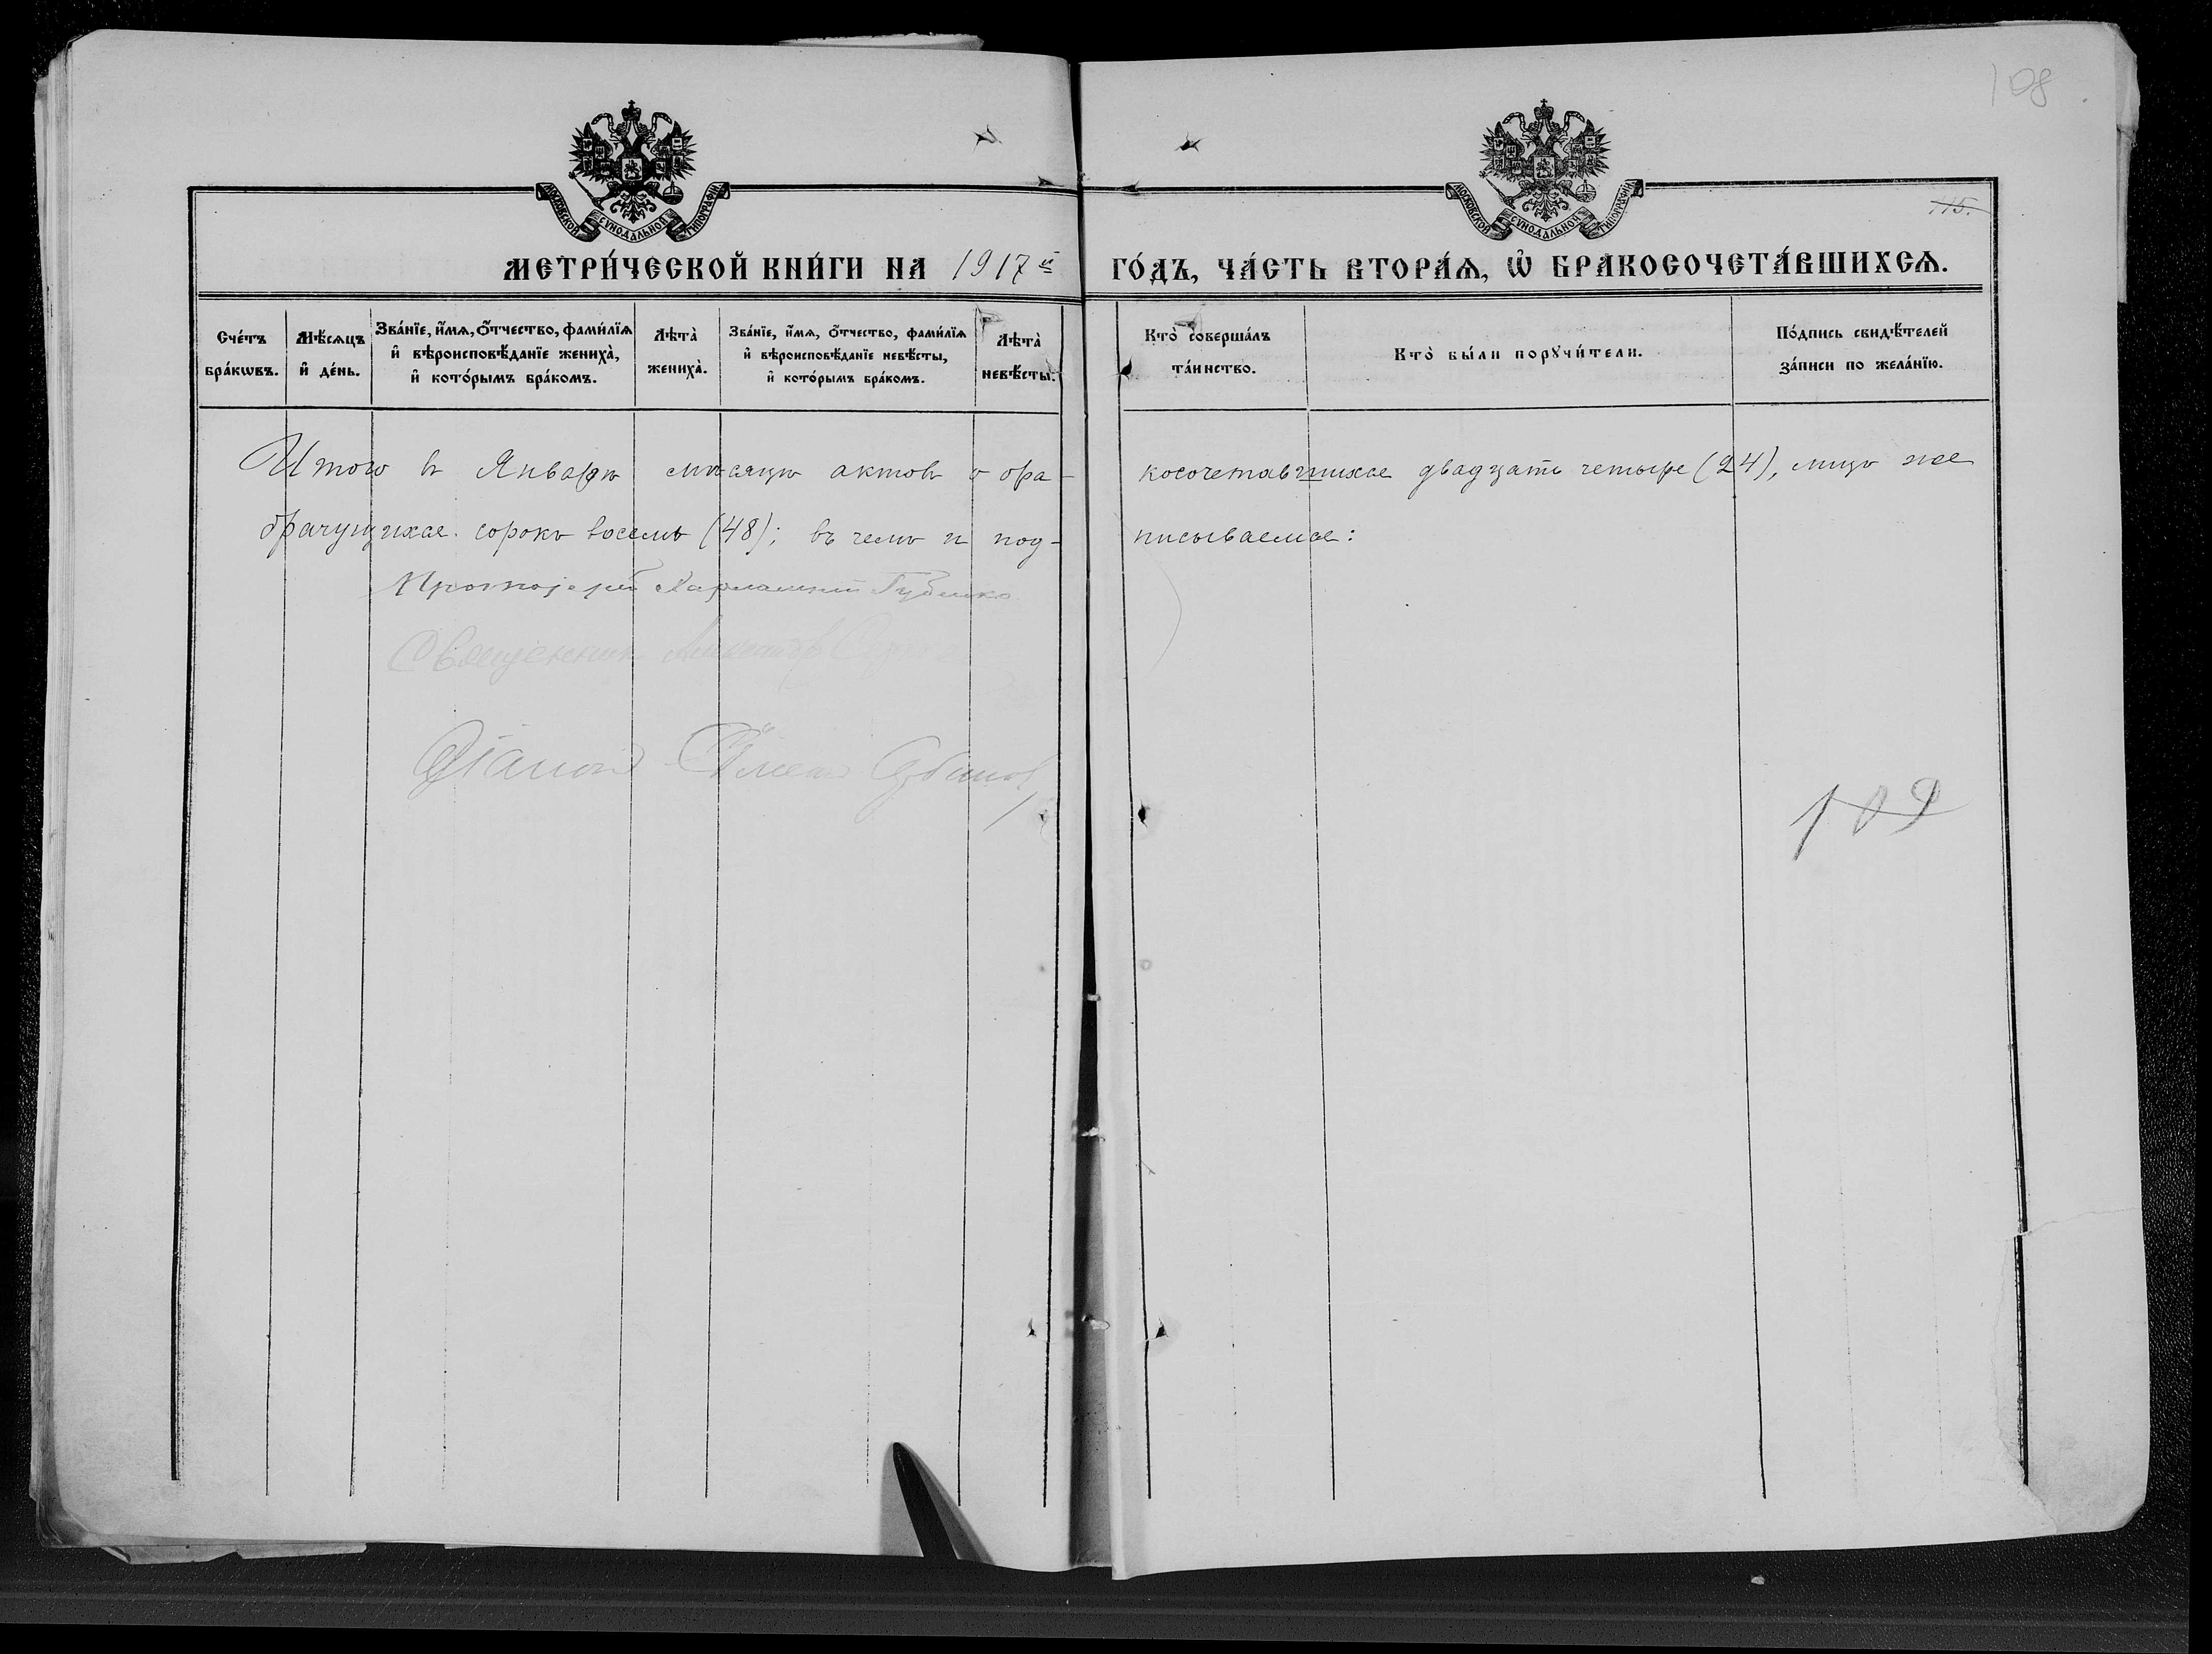 108
МОСКОВСКОЙ СѴНОДАЛЬНОЙ ТИПОГРАФІИ
МОСКОВСКОЙ СѴНОДАЛЬНОЙ ТИПОГРАФІИ
115.
МЕТРИ́ЧЕСКОЙ КНИ́ГИ НА 1917й ГО́ДЪ, ЧА́СТЬ ВТОРА́Ѧ, Ѡ҆ БРАКОСОЧЕТА́ВШИХСѦ.
Сче́тъ бра́кѡвъ.
Мѣ́сѧцъ и҆ де́нь.
Зва́нїе, и҆́мѧ, ѻ҆́тчество, фами́лїѧ и҆ вѣроисповѣ́данїе жениха̀, и҆ кото́рымъ бра́комъ.
Лѣта̀ жениха̀.
Зва́нїе, и҆́мѧ, ѻ҆́тчество, фами́лїѧ и҆ вѣроисповѣ́данїе невѣ́сты, и҆ кото́рымъ бра́комъ.
Лѣта̀ невѣ́сты.
Кто̀ соверша́лъ та́инство.
Кто̀ бы́ли порꙋчи́тели.
По́дпись свидѣ́телей за́писи по жела́нїю.
Итого въ Январѣ мѣсяцѣ актовъ о бра- косочетавшихся двадцать четыре (24), лицъ же
брачущихся сорокъ восемь (48); въ чемъ и под- писываемся:
Протоіерей Харлампій Губенко
Священникъ Александръ
Діаконъ
109